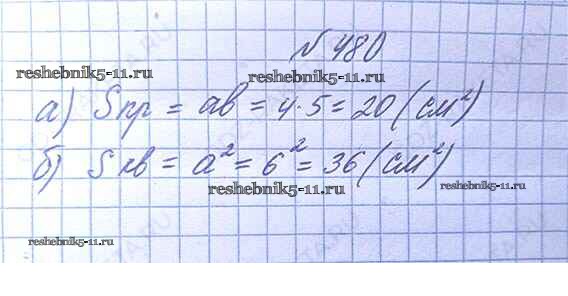 № 480
reshebnik5-11.ru reshebnik5-11.ru
а) Sпр = ab = 4·5 = 20 (см²)
б) Sкв = a² = 6² = 36 (см²)
reshebnik5-11.ru
reshebnik5-11.ru reshebnik5-11.ru